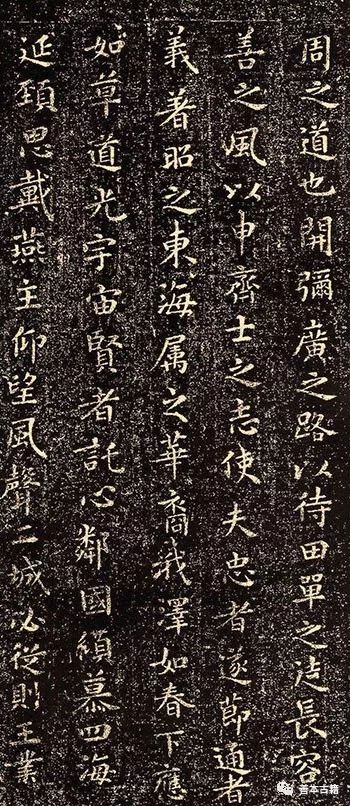 周之道也開彌廣之路以待田單之徒長容
善之風以申齊士之志使夫忠者遂節通者
義著昭之東海属之華裔我澤如春下應
如草道光宇宙賢者託心鄰國傾慕四海
延頸思戴燕主仰望風聲二城必從則王業
善本古籍